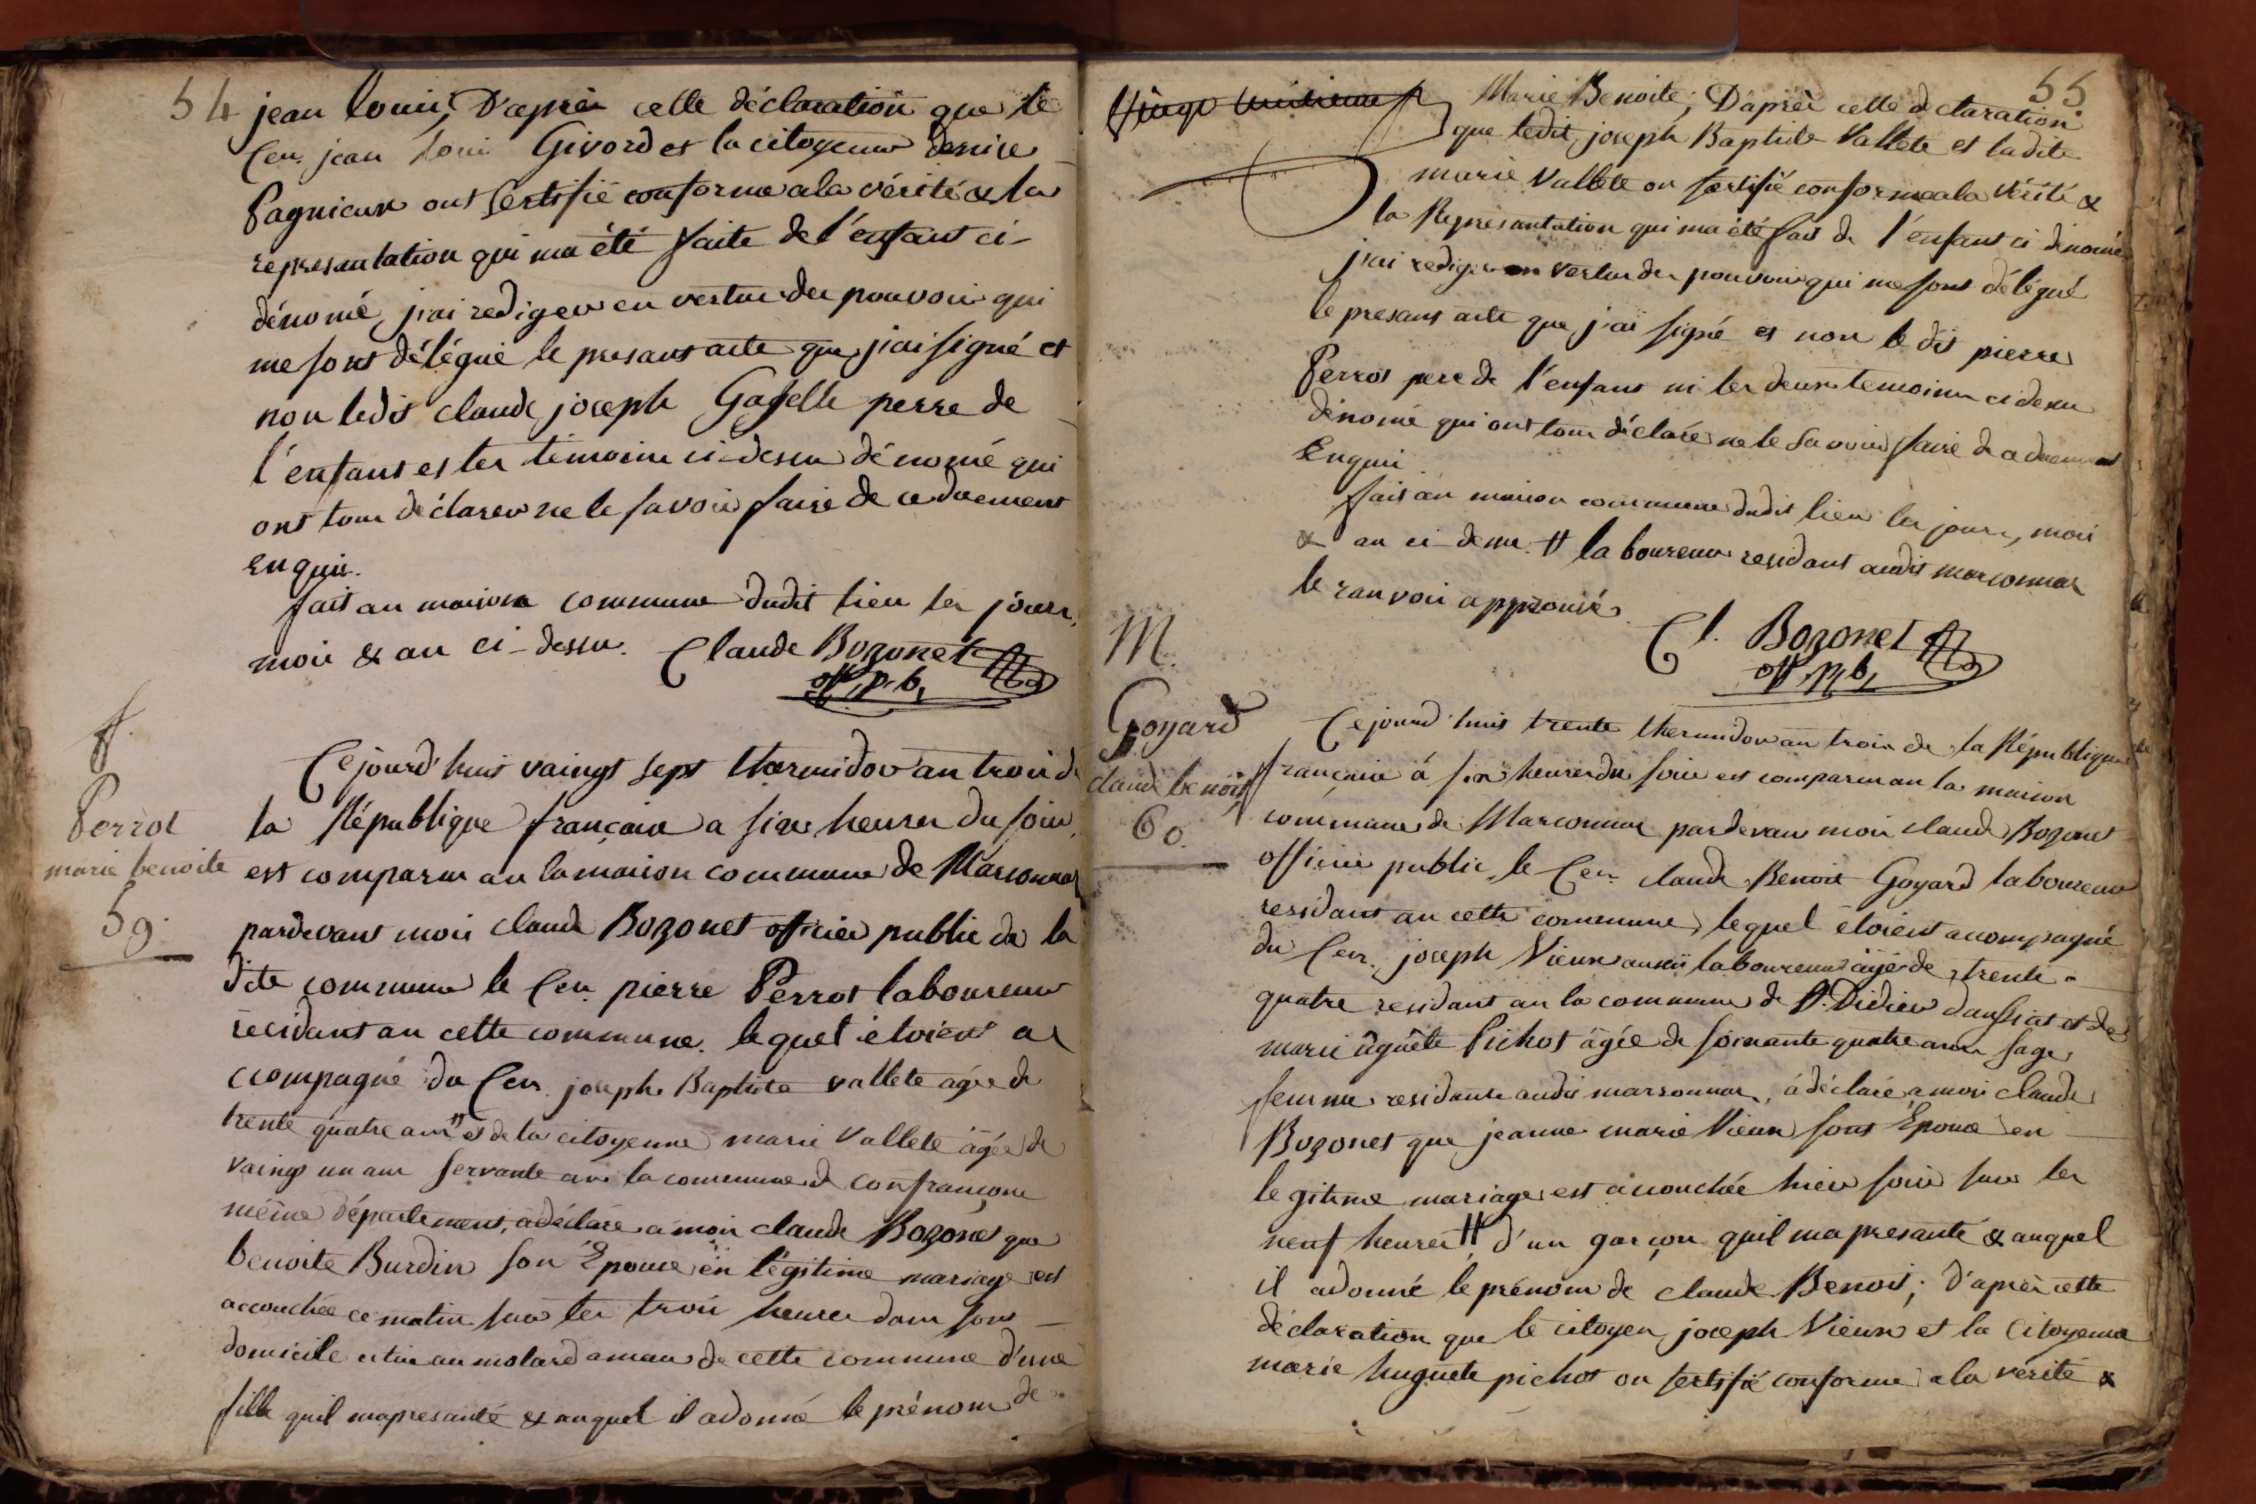 54
jean louis, D'après cette déclaration que le
Cen. jean loui Givord et la citoyenne denise
Pagnieux ont Sertifié conforme a la vérité & la
represantation qui ma été faite de l'enfant ci-
dénomé, j'ai rediger en vertu des pouvoir qui
me sont délégué le presant acte que j'ai signé et
non ledit claude joseph Gaselle perre de
l'enfant et les témoins ci-dessu dénomé qui
ont tous déclarer ne le savoir faire de ce duement
Enquis.
fait an maison commune dudit lieu les jour,
mois & an ci-dessu. Claude Bozonet
off. p.b,
f.
Perrot
marie benoite
59.
Cejourd'huis vaingt sept thermidor an trois de
la République françaisse a six heures du soir,
est comparu an la maison commune de Marsonnas
pardevant moi claude Bozonet officier public de la
dite commune le Cen. pierre Perrot laboureur
residant an cette commune. lequel étoient a
ccompagné du Cen. joseph Baptiste vallete agée de
trente quatre ans # et de la citoyenne marie Vallete âgée de
vaingt un ans servante ans la commune de confrançon
même département, a déclaré a moi claude Bozonet que
benoite Burdin son Epouse en légitime mariage est
accouchée ce matin sur les trois heures dans son
domicile citué au molard aman de cette commune d'une
fille quil ma presanté & auquel il a donné le prénom de
55
Marie Benoite; D'après cette déclaration
que ledit joseph Baptiste Vallete et ladite
marie Vallete on sertifié conforme a la Vérité &
la Represantation qui ma été fait de l'enfant ci dénomé
j'ai rediger en vertu des pouvoir qui me sont délégué
le presant acte que j'ai signé et non le dit pierre
Perrot pere de l'enfant ni les deux temoins ci desu
dénomé qui ont tous déclaré ne le savoir faire de ce duement
Enquis
fait an maison commune dudit lieu les jour, mois
& an ci-dessu. # laboureur residant audit marsonnas
le ranvoir approuvé.
Cl. Bozonet
off. p.b,
M.
Goyard
claude benoit
60.
Cejourd'huis trente thermidor an trois de la République
françaisse á six heures du soir est comparu an la maison
commune de Marsonnas pardevant moi claude Bozonet
officier public, le Cen. claude Benoit Goyard laboureur
residant an cette commune, lequel étoient acompagné
du Cen. joseph Vieux aussi laboureur âgé de trente-
quatre residant an la commune de St. Didier daussiat et de
marie ûguête Pichot âgée de soixante quatre ans sage
femme residante audit marsonnas, á déclaré a moi claude
Bozonet que jeanne marie Vieux sont Epouse en
legitime mariage est accouchée hier soir sur les
neuf heures # d'un garçon quil ma presanté & auquel
il a donné le prénom de claude Benoit; d'après cette
déclaration que le citoyen joseph Vieux et la Citoyenne
marie huguete pichot on sertifié conforme a la vérité &